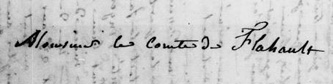 Monsieur le comte de Flahault